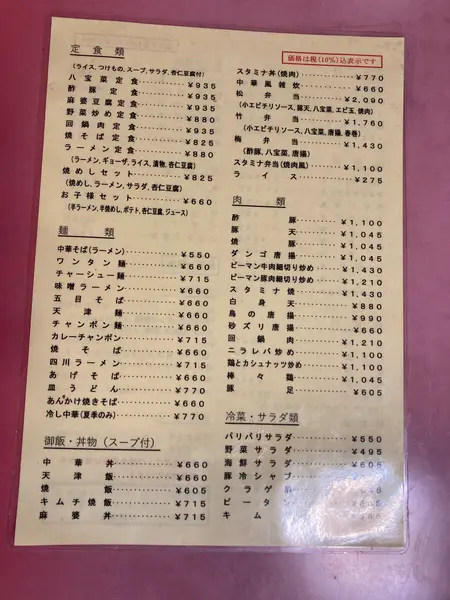 定食類
(ライス、つけもの、スープ、サラダ、杏仁豆腐付)
八宝菜定食 ¥935
酢豚定食 ¥935
麻婆豆腐定食 ¥935
野菜炒め定食 ¥880
回鍋肉定食 ¥935
焼そば定食 ¥825
ラーメン定食 ¥880
(ラーメン、ギョーザ、ライス、漬物、杏仁豆腐)
焼めしセット ¥825
(焼めし、ラーメン、サラダ、杏仁豆腐)
お子様セット ¥660
(半ラーメン、半焼めし、ポテト、杏仁豆腐、ジュース)
麺類
中華そば(ラーメン) ¥550
ワンタン麺 ¥660
チャーシュー麺 ¥715
味噌ラーメン ¥660
五目そば ¥660
天津麺 ¥660
チャンポン麺 ¥660
カレーチャンポン ¥715
焼そば ¥660
四川ラーメン ¥715
あげそば ¥660
皿うどん ¥770
あんかけ焼きそば ¥660
冷し中華(夏季のみ) ¥770
御飯・丼物(スープ付)
中華丼 ¥660
天津飯 ¥660
焼飯 ¥605
キムチ焼飯 ¥715
麻婆丼 ¥715
価格は税(10%)込表示です
スタミナ丼(焼肉) ¥770
中華風雑炊 ¥660
松弁当 ¥2,090
(小エビチリソース、豚天、八宝菜、エビ玉、焼肉)
竹弁当 ¥1,760
(小エビチリソース、八宝菜、唐揚、春巻)
梅弁当 ¥1,430
(酢豚、八宝菜、唐揚)
スタミナ弁当(焼肉風) ¥1,100
ライス ¥275
肉類
酢豚 ¥1,100
豚天 ¥1,045
焼豚 ¥1,045
ダンゴ唐揚 ¥1,045
ピーマン牛肉細切り炒め ¥1,430
ピーマン豚肉細切り炒め ¥1,210
スタミナ焼 ¥1,430
白身天 ¥880
鳥の唐揚 ¥990
砂ズリ唐揚 ¥660
回鍋肉 ¥1,210
ニラレバ炒め ¥1,100
鶏とカシュナッツ炒め ¥1,100
棒々鶏 ¥1,045
豚足 ¥605
冷菜・サラダ類
パリパリサラダ ¥550
野菜サラダ ¥495
海鮮サラダ ¥605
豚冷シャブ
クラゲ酢
ピータン
キム